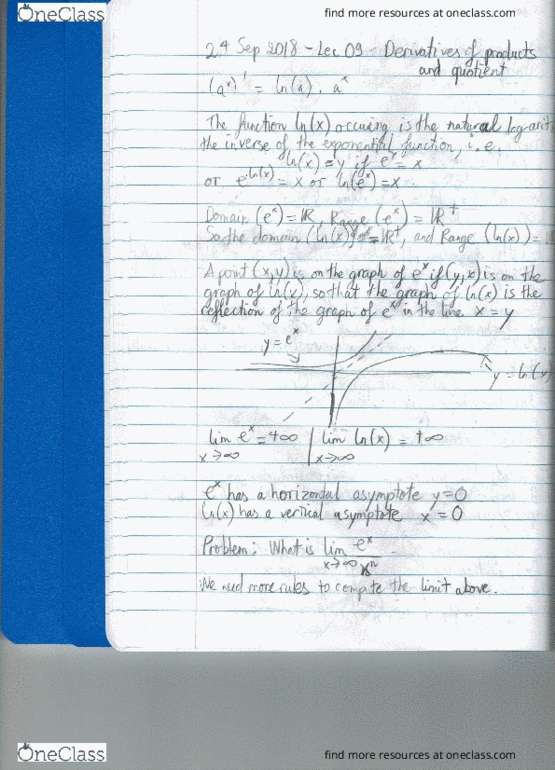 OneClass find more resources at oneclass.com
24 Sep 2018 - Lec 09 - Derivatives of products
and quotient
(aˣ)' = ln(a) . aˣ
The function ln(x) occuring is the natural logarit
the inverse of the exponential function, i.e.
ln(x) = y if eʸ = x
or e^ln(x) = x or ln(eˣ) = x
Domain (eˣ) = IR, Range (eˣ) = IR⁺
So the domain (ln(x)) = IR⁺, and Range (ln(x)) = IR
A point (x,y) is on the graph of eˣ if (y,x) is on the
graph of ln(x), so that the graph of ln(x) is the
reflection of the graph of eˣ in the line x = y
y = eˣ
y = ln(x)
lim eˣ = +∞ | lim ln(x) = +∞
x→∞ x→∞
eˣ has a horizontal asymptote y=0
ln(x) has a vertical asymptote x = 0
Problem: What is lim eˣ
x→∞ xⁿ
We need more rules to compute the limit above.
OneClass find more resources at oneclass.com